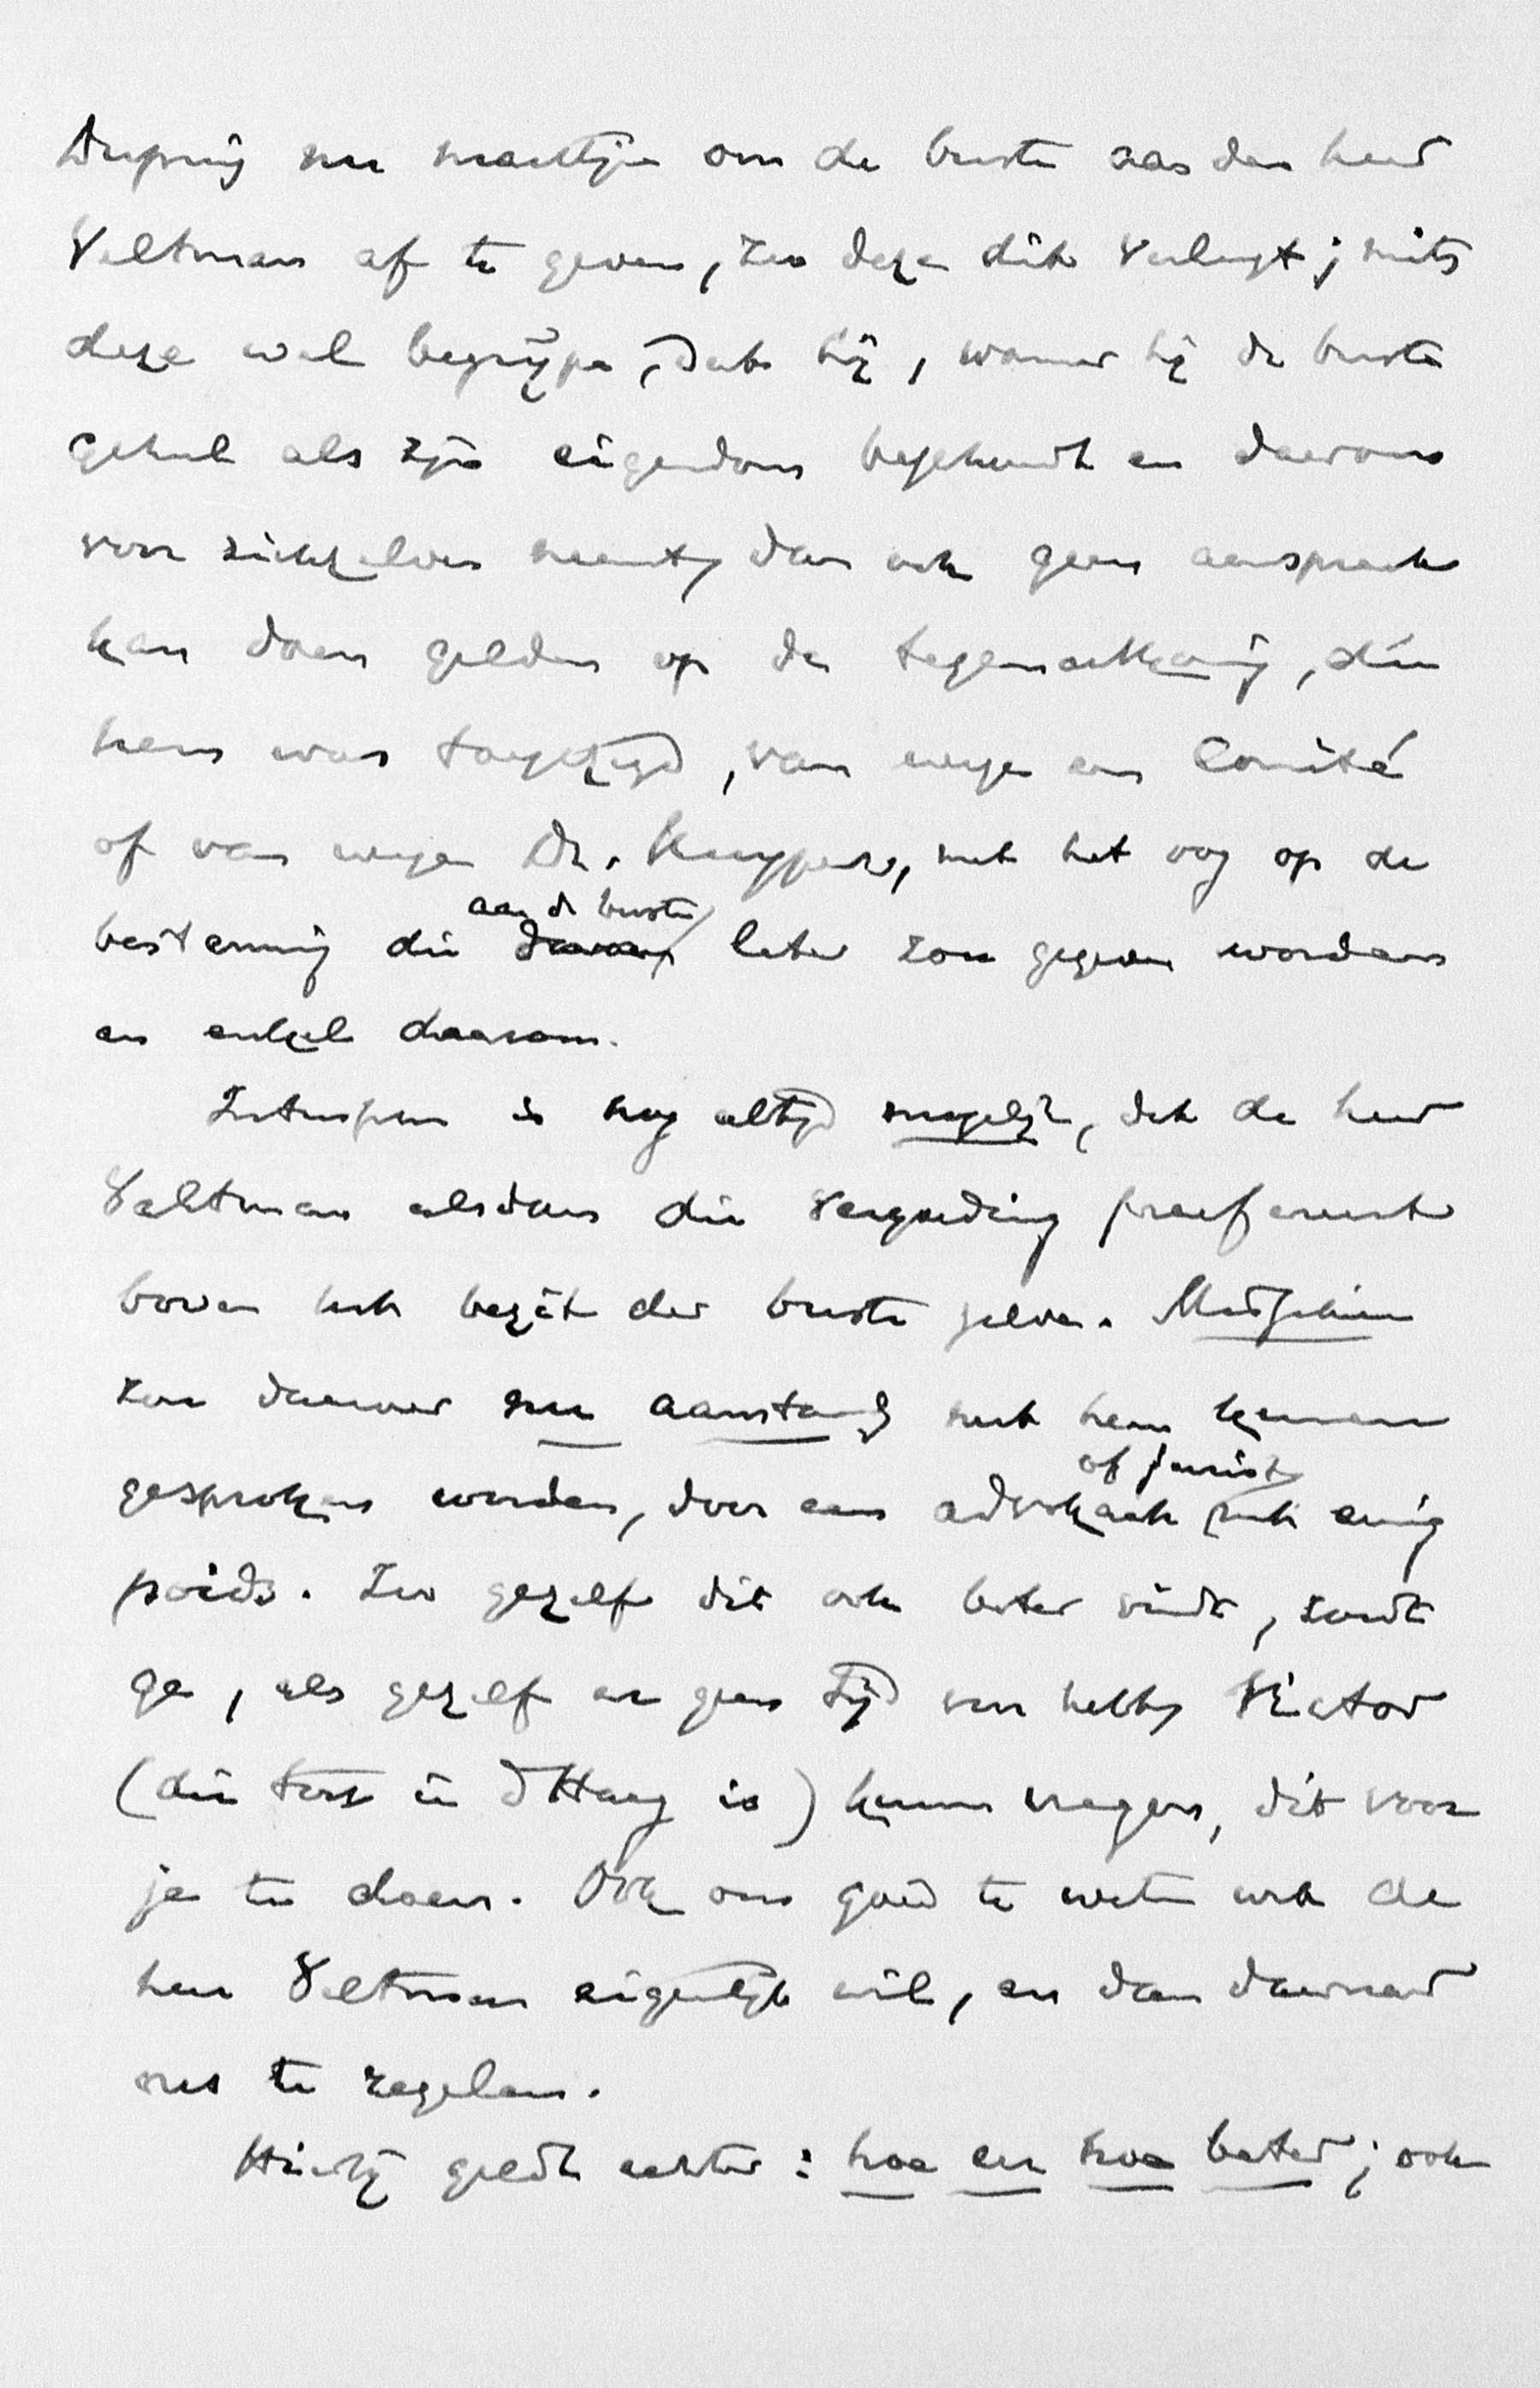 nu machtigen om de buste aan den heer
Veltman af te geven, zoo deze dit verlangt; mits
deze wel begrijpe, dat hij, wanneer hij de buste
geheel als zijn eigendom beschouwt en daarom
voor zichzelven neemt, dan ook geen aanspraak
kan doen gelden op de tegemoetkoming, die
hem was toegezegd, van wege een Comité
of van wege Dr. Kuyper, met het oog op de
aan de buste
bestemming die later zou gegeven worden
en enkel daarom.
Intusschen is nog altijd mogelijk, dat de heer
Veltman alsdan die vergoeding prefereert
boven het bezit der buste zelve. Misschien
zou daarover nu aanstonds met hem kunnen
of jurist
gesproken worden, door een advokaat met eenig
poids. Zoo gezelf dit ook beter vindt, zoudt
ge, als gezelf er geen tijd voor hebt, Victor
(die toch in d Haag is) kunnen vragen, dit voor
je te doen. Ook om goed te weten wat de
heer Veltman eigenlijk wil, en dan daarnaar
ons te regelen.
Hierbij geldt echter: hoe eer hoe beter; ook